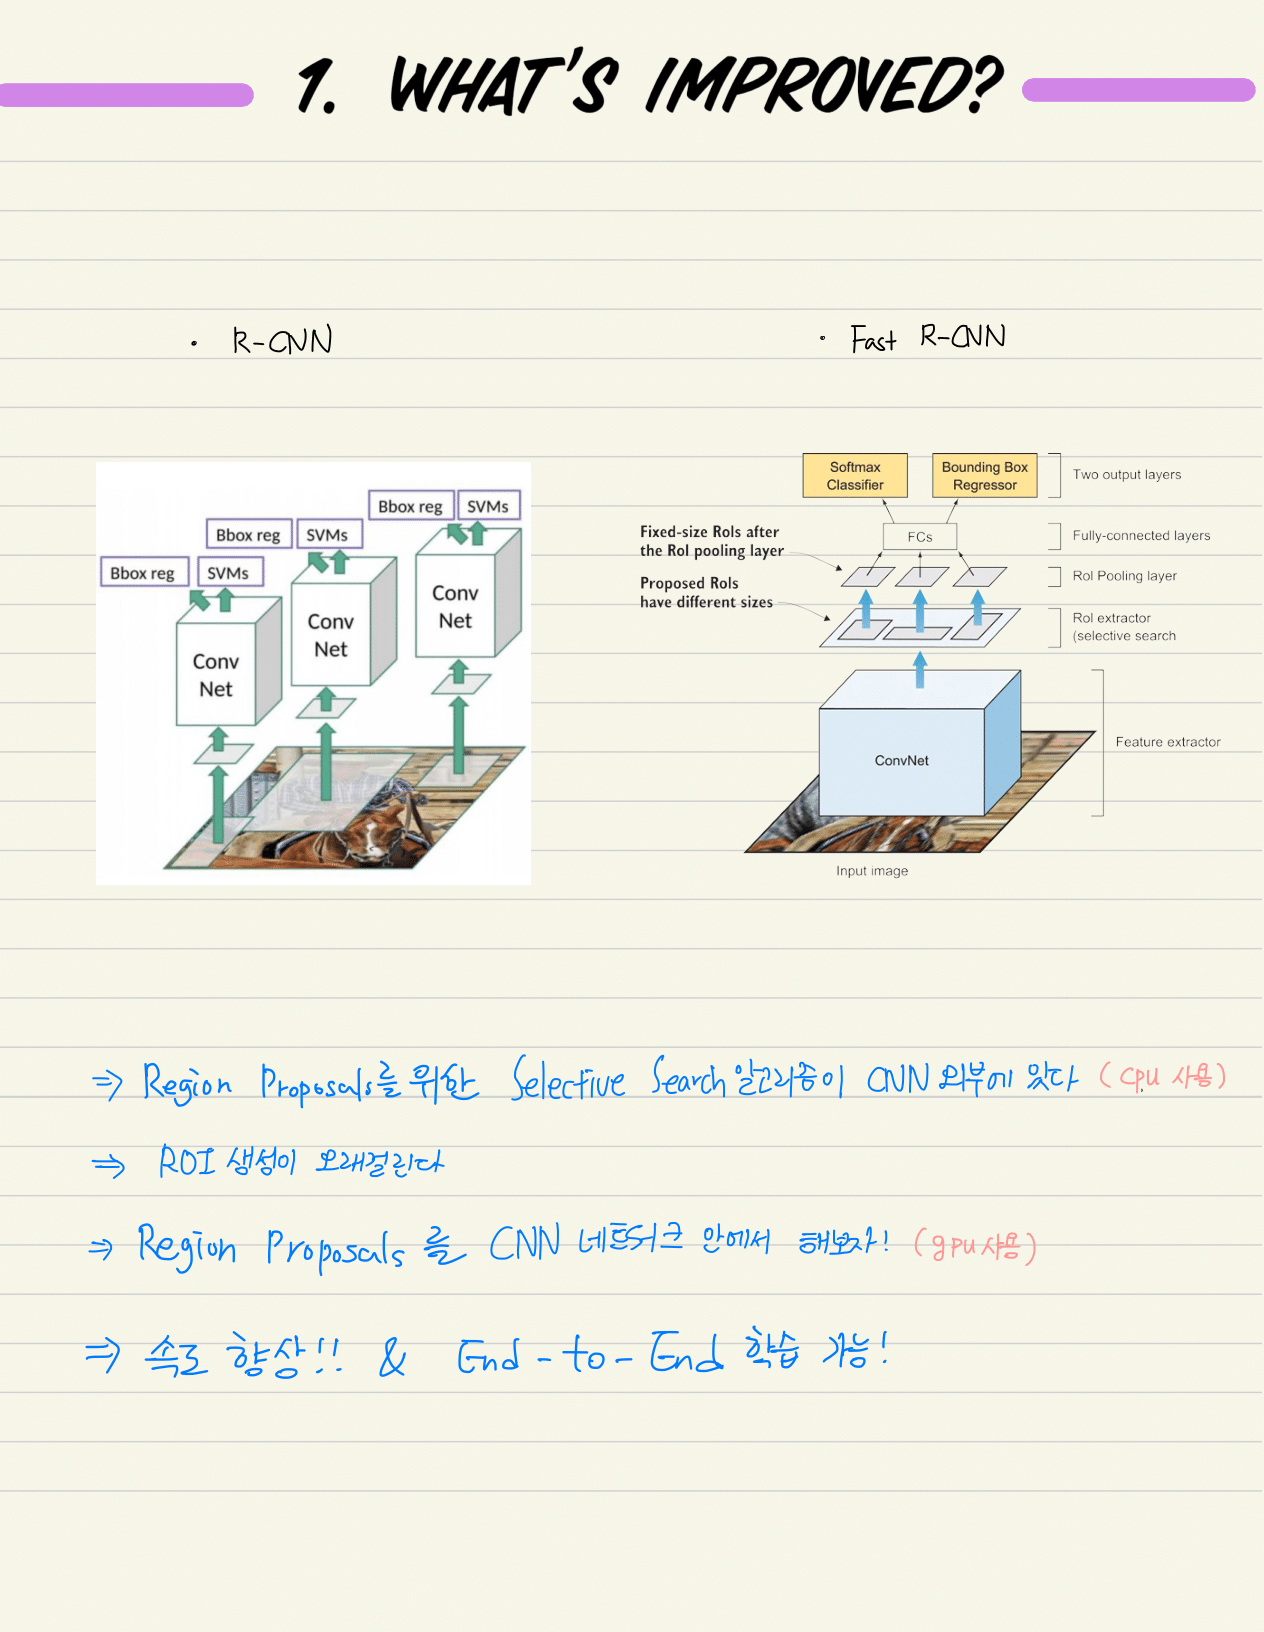 1. WHAT'S IMPROVED?
• R-CNN
• Fast R-CNN
Bbox reg SVMs
Bbox reg SVMs
Bbox reg SVMs
Conv Net
Conv Net
Conv Net
Softmax Classifier
Bounding Box Regressor
Two output layers
Fixed-size RoIs after
the RoI pooling layer
FCs
Fully-connected layers
Proposed RoIs
have different sizes
RoI Pooling layer
RoI extractor
(selective search
ConvNet
Feature extractor
Input image
⇒ Region Proposals를 위한 Selective Search 알고리즘이 CNN 외부에 있다 (cpu 사용)
⇒ ROI 생성이 오래걸린다
⇒ Region Proposals 를 CNN 네트워크 안에서 해보자! (gpu 사용)
⇒ 속도 향상!! & End-to-End 학습 가능!